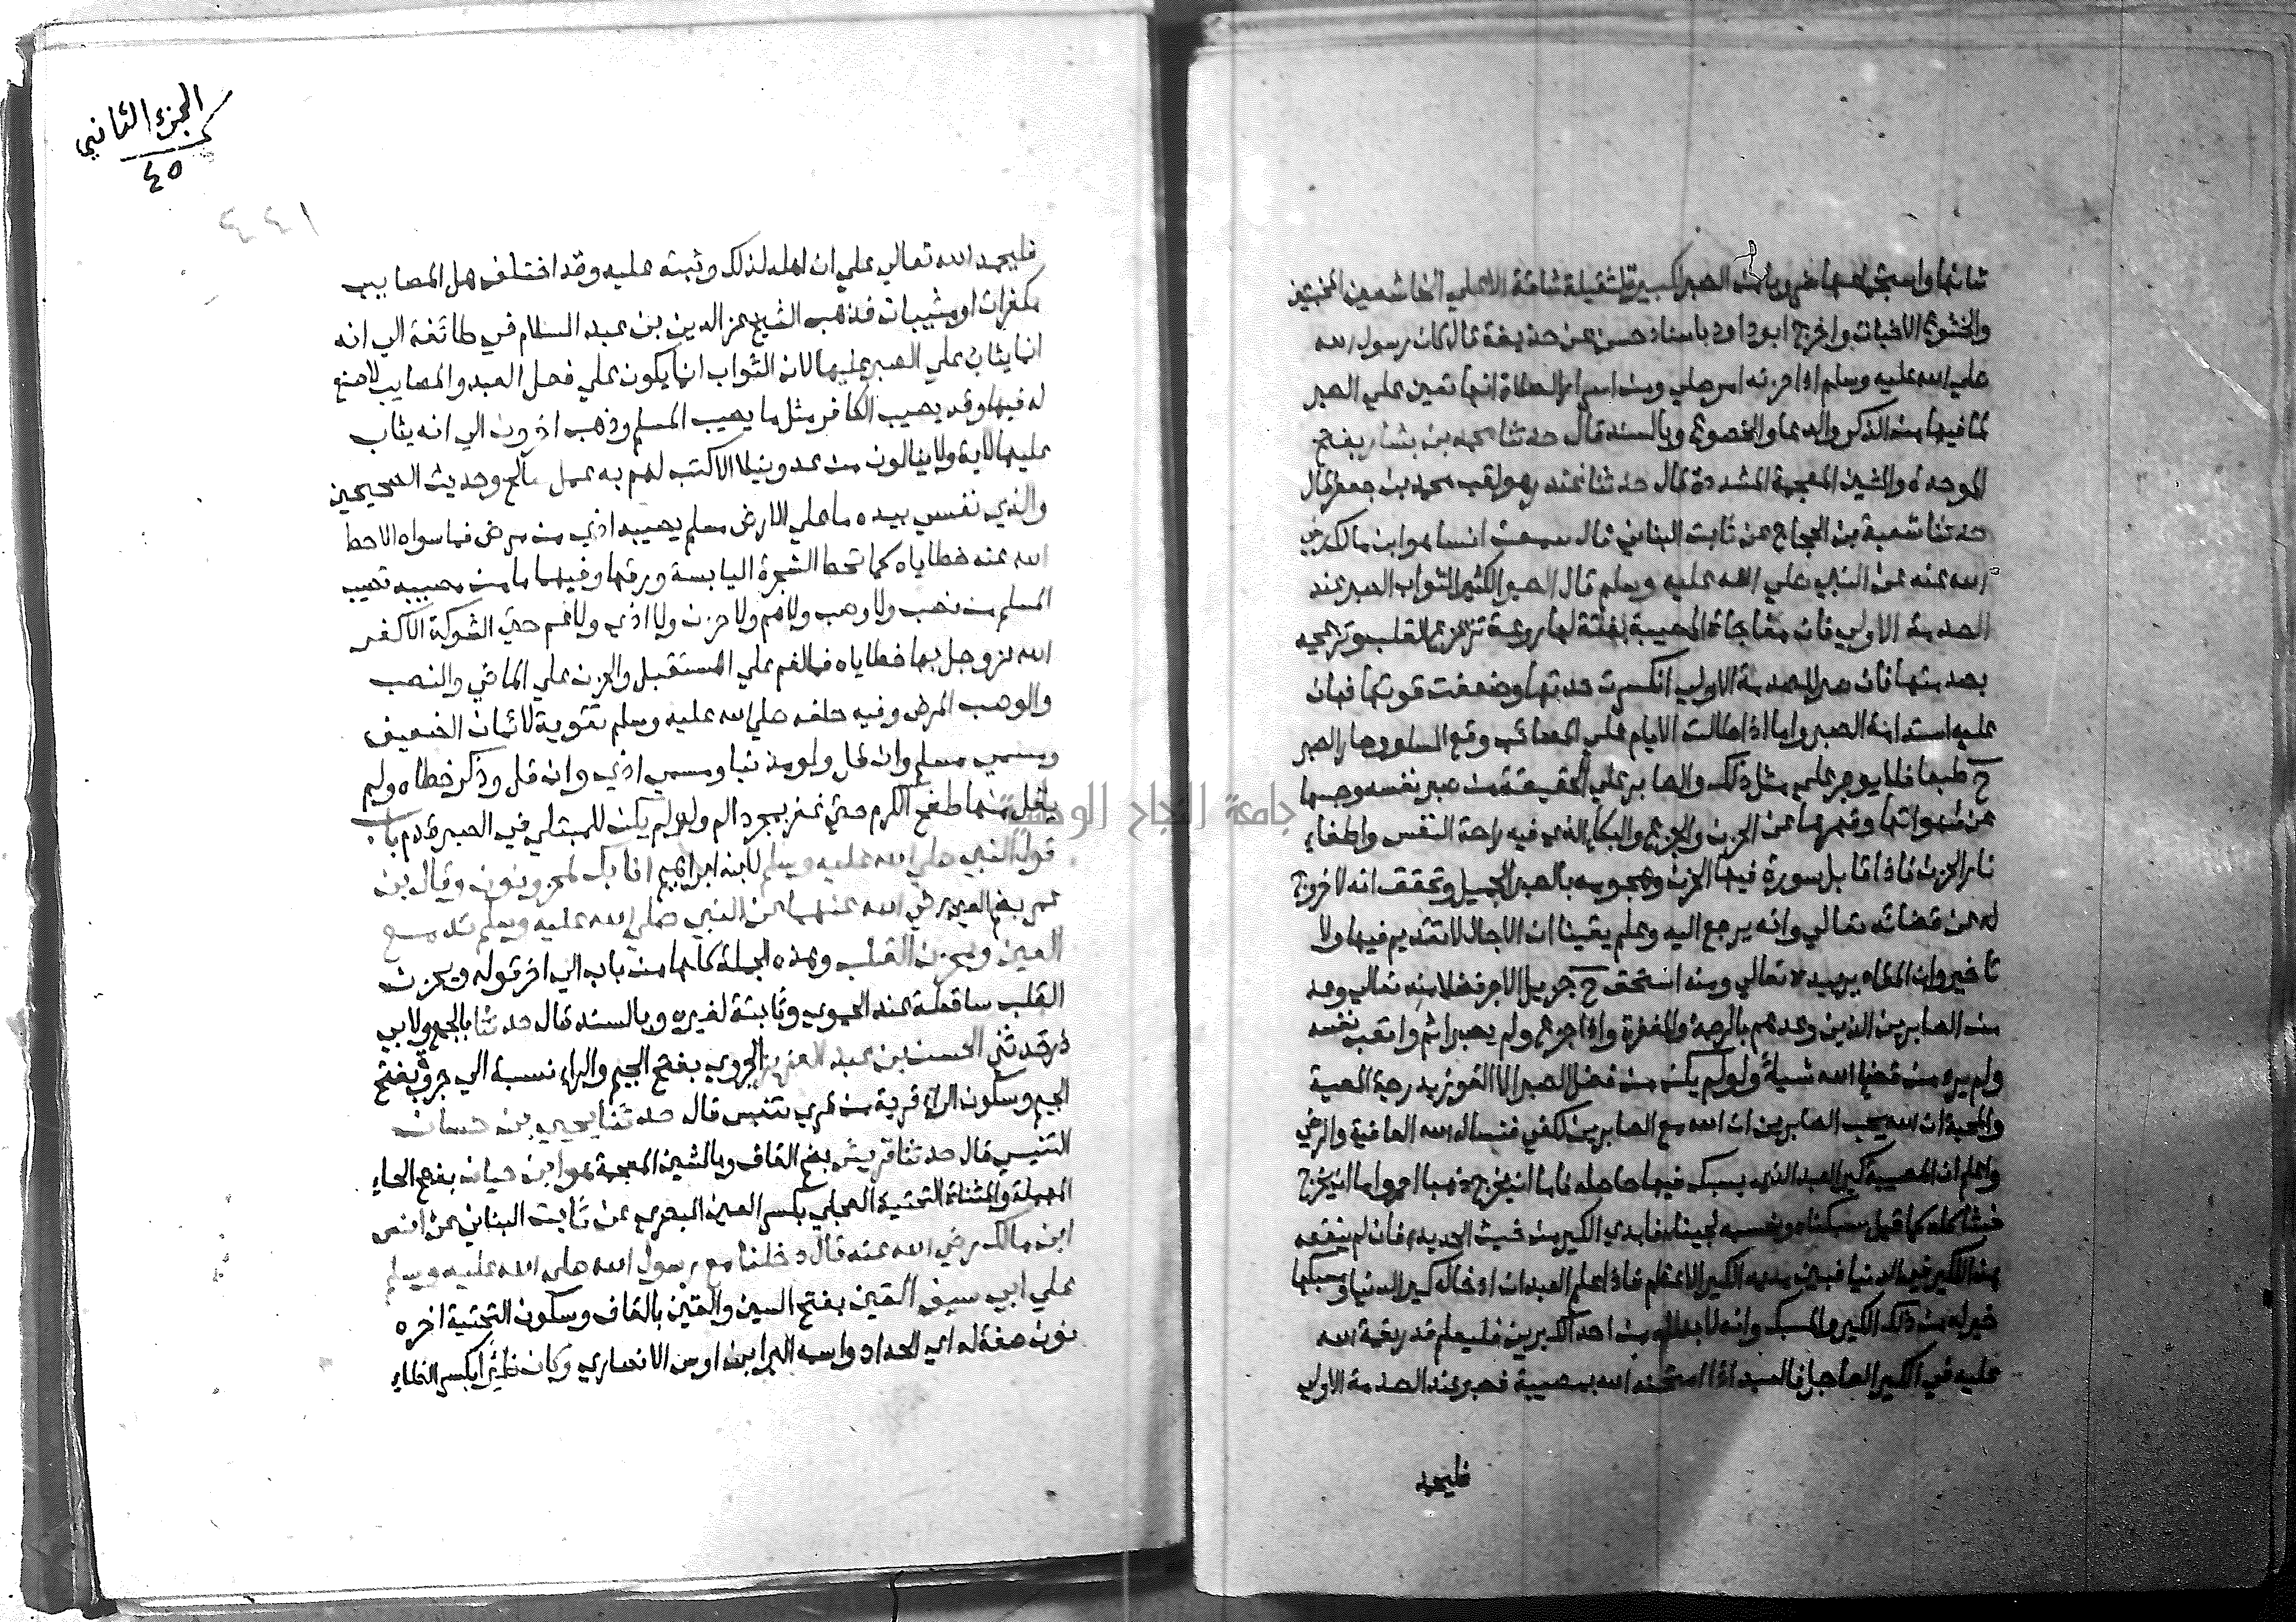 شانها واستجماعها ضروبا من الصبر لكبيرة لثقيلة شاقة الا علي الخاشعين المخبتين
والخشوع الاخبات واخرج ابو داود باسناد حسن عن حذيفة قال كان رسول الله
صلي الله عليه وسلم اذا حزنه امر صلي ومن اسرار الصلاة انها تعين علي الصبر
لما فيها من الذكر والدعا والخضوع وبالسند قال حدثنا محمد بن بشار بفتح
الموحدة والشين المعجمة المشددة قال حدثنا غندر هو لقب محمد بن جعفر قال
حدثنا شعبة بن الحجاج عن ثابت البناني قال سمعت انسا هو ابن مالك رضي
الله عنه عن النبي صلي الله عليه وسلم قال الصبر الكثير الثواب الصبر عند
الصدمة الاولي فان مفاجاة المصيبة بغتة لها روعة تزعزع القلب وتزعجه
بصدمتها فان صبر للصدمة الاولي انكسرت حدتها وضعفت قوتها فهان
عليه استدامة الصبر واما اذا طالت الايام علي المصائب وقع السلو وصار الصبر
ح طبعا فلا يوجر علي مثل ذلك والصابر علي الحقيقة من صبر نفسه وحبسها
عن شهواتها وقهرها عن الحزن والجزع والبكاء الذي فيه راحة النفس واطفاء
نار الحزن فاذا قابل سورة فيها الحزن وهجومه بالصبر الجميل وتحقق انه لا خروج
له عن قضائه تعالي وانه يرجع اليه وعلم يقينا ان الاجال لا تقديم فيها ولا
تاخير وان المقادير بيده تعالي ومنه استحق ح جزيل الاجر فضلا منه تعالي وعد
من الصابرين الذين وعدهم بالرحمة والمغفرة واذا جزع ولم يصبر اثم واتعب نفسه
ولم يرد من قضاء الله شيأ ولو لم يكن من فضل الصبر الا الفوز بدرجة المعية
والمحبة ان الله يحب الصابرين ان الله مع الصابرين لكفي فنسال الله العافية والرضي
واعلم ان المصيبة كير العبد الذي يسبك فيها حاصله فاما ان يخرج ذهبا احمر واما ان يخرج
خبثا كله كما قيل سبكناه ونحسبه لجينا فابدي الكير من خبث الحديد فان لم ينفعه
هذا الكير في الدنيا فبين يديه الكير الاعظم فاذا علم العبد ان ادخاله كير الدنيا وسبكها
خير له من ذلك الكير والمسبك وانه لا بد له من احد الكيرين فليعلم قدر نعمة الله
عليه في الكير العاجل فالعبد اذا امتحنه الله بمصيبة فصبر عند الصدمة الاولي
فليحمد
الجزء الثاني
٤٥
فليحمد الله تعالي علي ان اهله لذلك وثبته عليه وقد اختلف هل المصايب
مكفرات او مثيبات فذهب الشيخ عز الدين بن عبد السلام في طائفة الي انه
انما يثاب علي الصبر عليها لان الثواب انما يكون علي فعل العبد والمصايب لا صنع
له فيها وقد يصيب الكافر مثل ما يصيب المسلم وذهب اخرون الي انه يثاب
عليها لاية ولا ينالون من عدو نيلا الا كتب لهم به عمل صالح وحديث الصحيحين
والذي نفسي بيده ما علي الارض مسلم يصيبه اذي من مرض فما سواه الا حط
الله عنه خطاياه كما تحط الشجرة اليابسة ورقها وفيهما ما من مصيبه تصيب
المسلم من نصب ولا وصب ولا هم ولا حزن ولا اذي ولا غم حتي الشوكة الا كفر
الله عز وجل بها خطاياه فالغم علي المستقبل والحزن علي الماضي والنصب
والوصب المرض وفيه حلفه صلي الله عليه وسلم تقوية لايمان الضعيف
ومسمي مسلم وان قل ولو مذنبا ومسمي اذي وان قل وذكر خطاه ولم
يقل منها طفح الكرم حتي غفر بمجرد الم ولو لم يكن للمبتلي في الصبر قدم باب
قول النبي صلي الله عليه وسلم لابنه ابراهيم انا بك لمحزونون وقال بن
عمر بضم العين رضي الله عنهما عن النبي صلي الله عليه وسلم تدمع
العين ويحزن القلب وهذه الجملة كلها من باب الي اخر قوله ويحزن
القلب ساقطة عند الحموي وثابتة لغيره وبالسند قال حدثنا بالجمع ولابي
ذر حدثني الحسن بن عبد العزيز الجروي بفتح الجيم والراء نسبة الي جروة بفتح
الجيم وسكون الراء قرية من قري تنيس قال حدثنا يحيي بن حسان
التنيسي قال حدثنا قريش بضم القاف وبالشين المعجمة هو ابن حيان بفتح الحاء
المهملة والمثناة التحتية العجلي بكسر العين البصري عن ثابت البناني عن انس
ابن مالك رضي الله عنه قال دخلنا مع رسول الله صلي الله عليه وسلم
علي ابي سيف القين بفتح السين والقين بالقاف وسكون التحتية اخره
نون صفة له اي الحداد واسمه البرا ابن اوس الانصاري وكان ظئرا بكسر الظاء
جامعة النجاح الوطنية